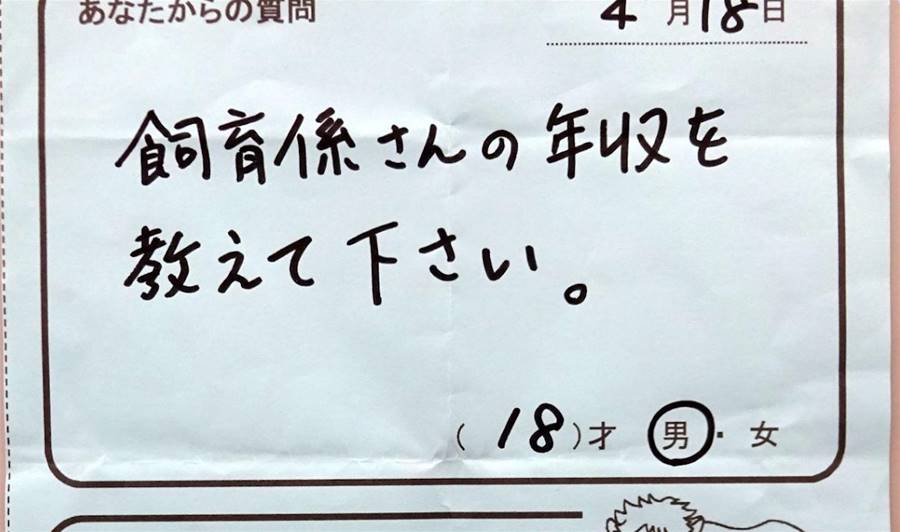 あなたからの質問
4月18日
飼育係さんの年収を
教えて下さい。
(18)才 男・女